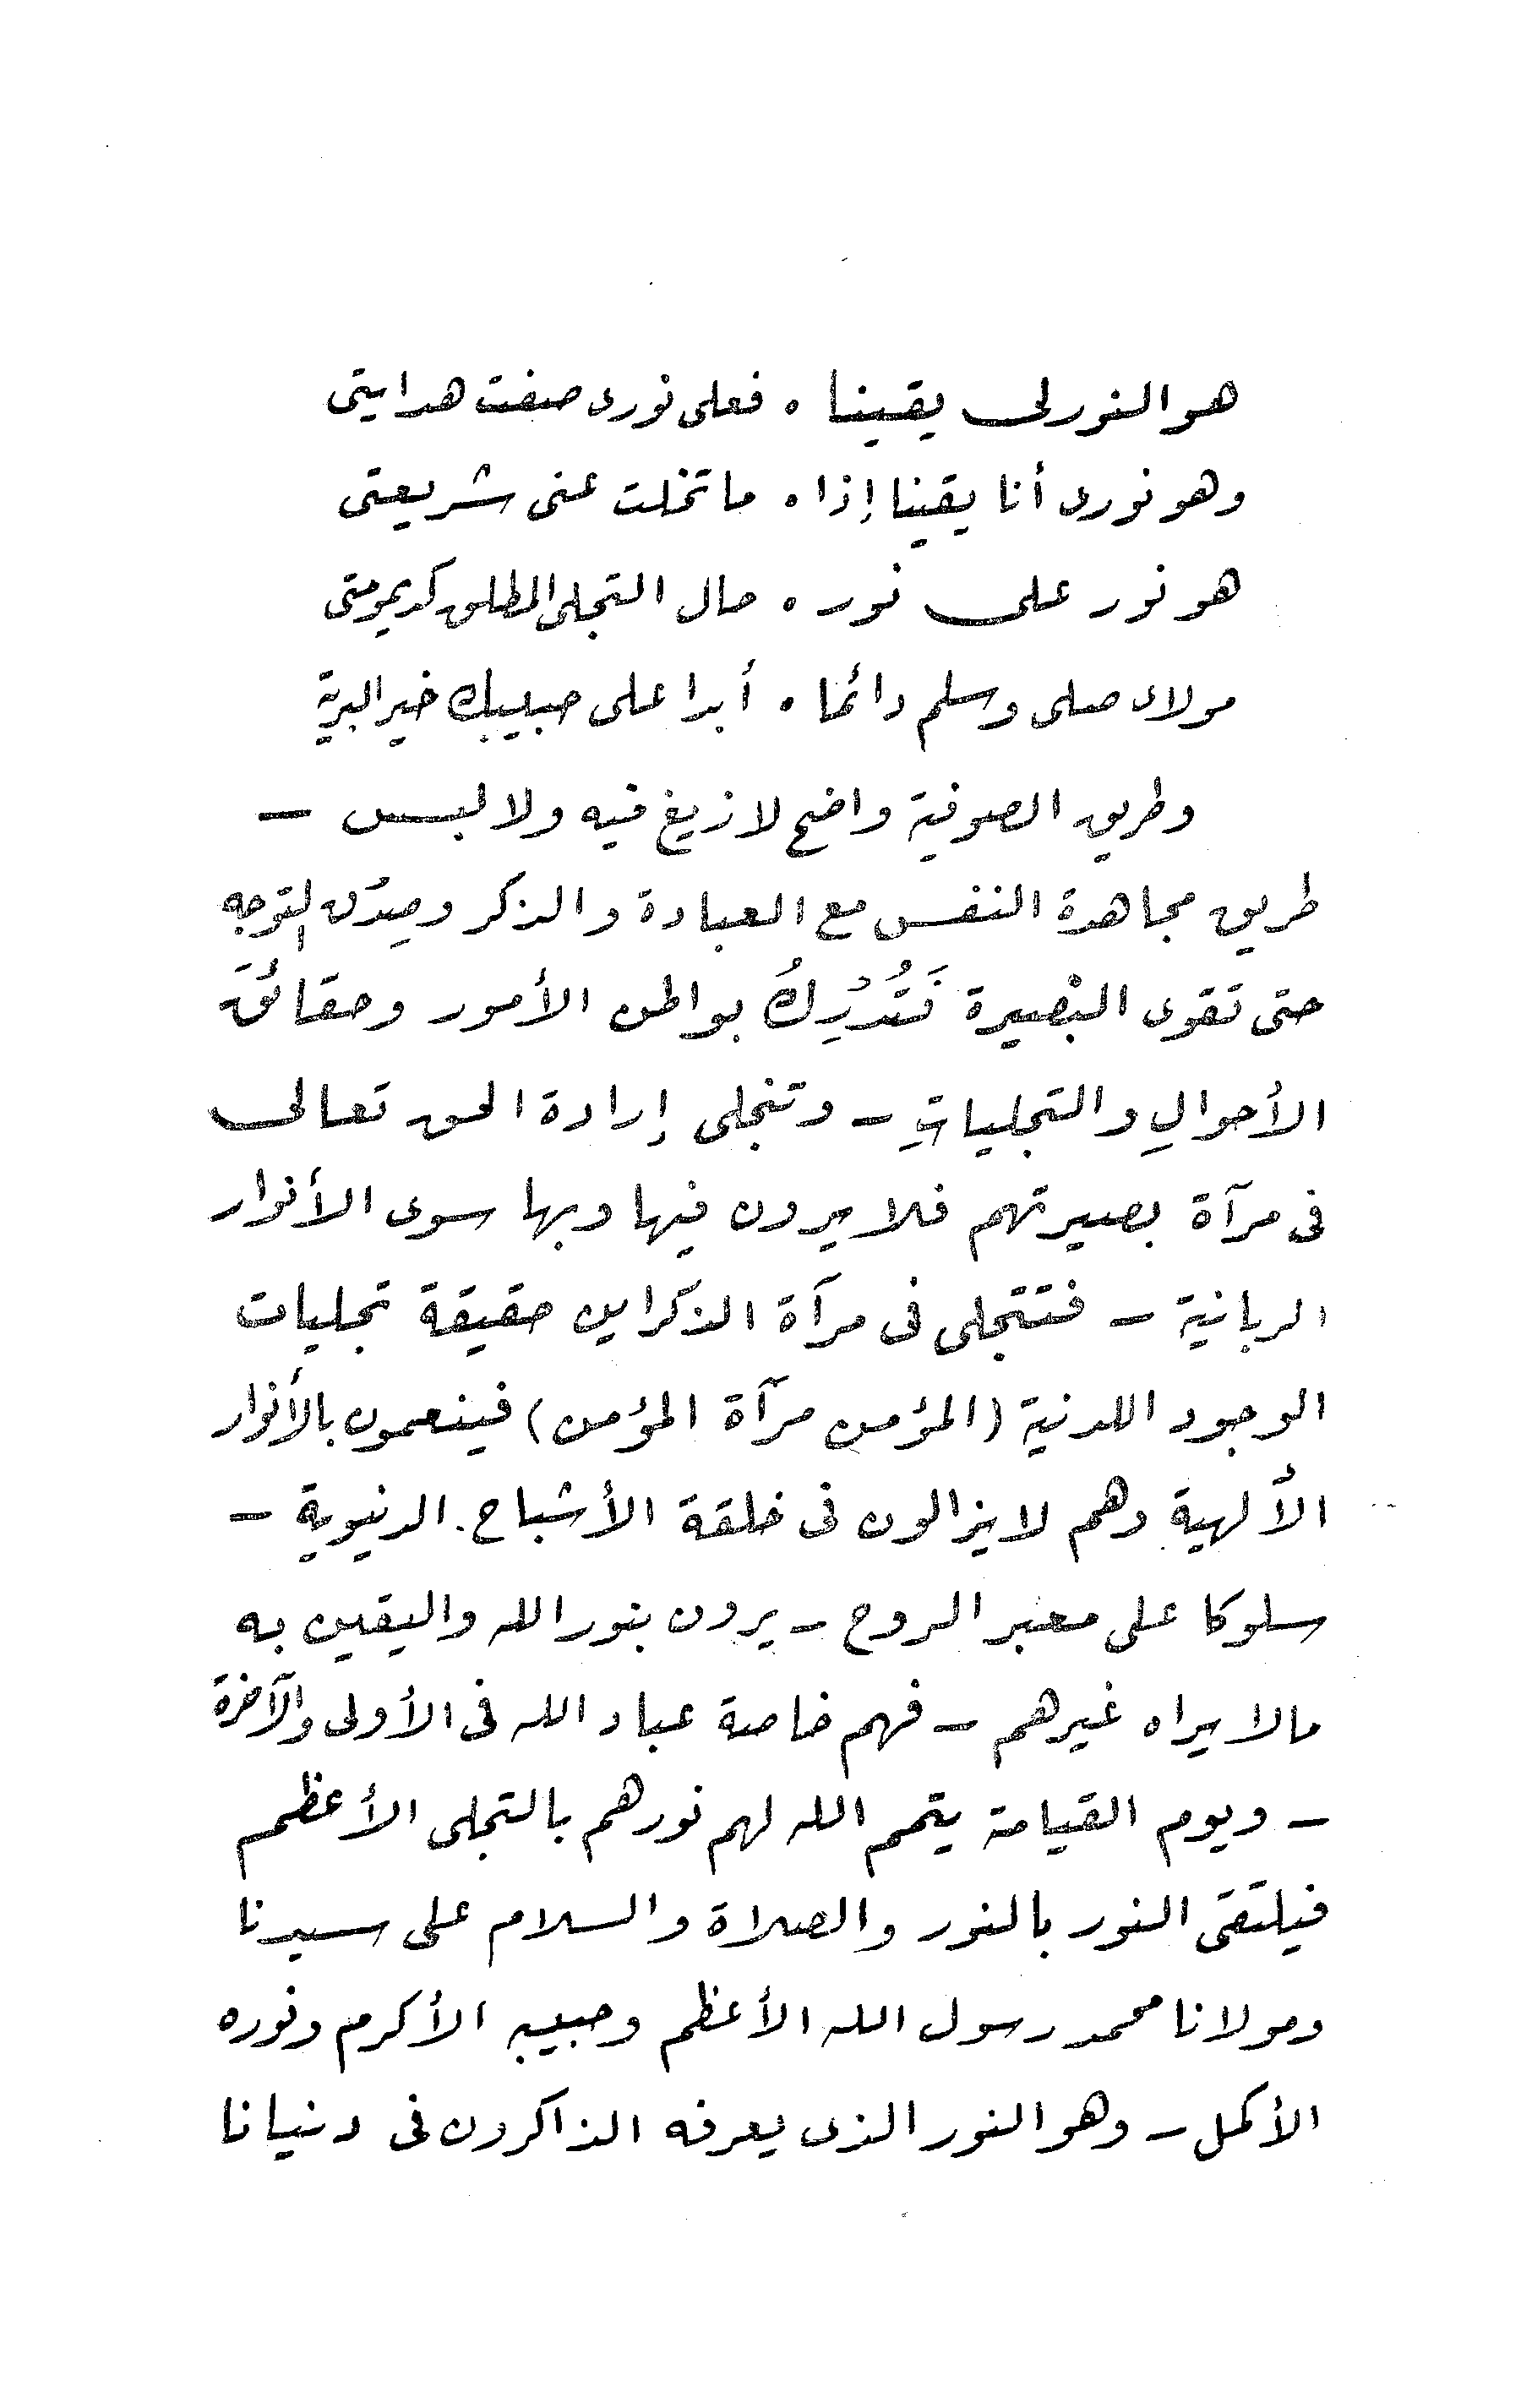 هو النور لى يقينا . فعلى نورى صفت هدايتى
وهو نورى أنا يقينا إذا . ما تخلت عنى شريعتى
هو نور على نور . حال التجلى المطلق كديمومتى
مولاى صلى وسلم دائما . أبدا على حبيبك خير البرية
وطريق الصوفية واضح لا زيغ فيه ولا لبس –
طريق مجاهدة النفس مع العبادة والذكر وصِدْق التوجه
حتى تقوى البصيرة فَتُدْرِكُ بواطن الأمور وحقائقَ
الأحوالِ والتجلياتِ – وتنجلى إرادة الحق تعالى
فى مرآة بصيرتهم فلا يرون فيها وبها سوى الأنوار
الربانية – فتتجلى فى مرآة الذكراين حقيقة تجليات
الوجود اللدنية (المؤمن مرآة المؤمن) فينعمون بالأنوار
الألهية وهم لا يزالون فى خلقة الأشباح الدنيوية –
سلوكا على معبر الروح – يرون بنور الله واليقين به
مالا يراه غيرهم – فهم خاصة عباد الله فى الأولى والآخرة
– ويوم القيامة يتمم الله لهم نورهم بالتجلى الأعظم
فيلتقى النور بالنور والصلاة والسلام على سيدنا
ومولانا محمد رسول الله الأعظم وحبيبه الأكرم ونوره
الأكمل – وهو النور الذى يعرفه الذاكرون فى دنيانا